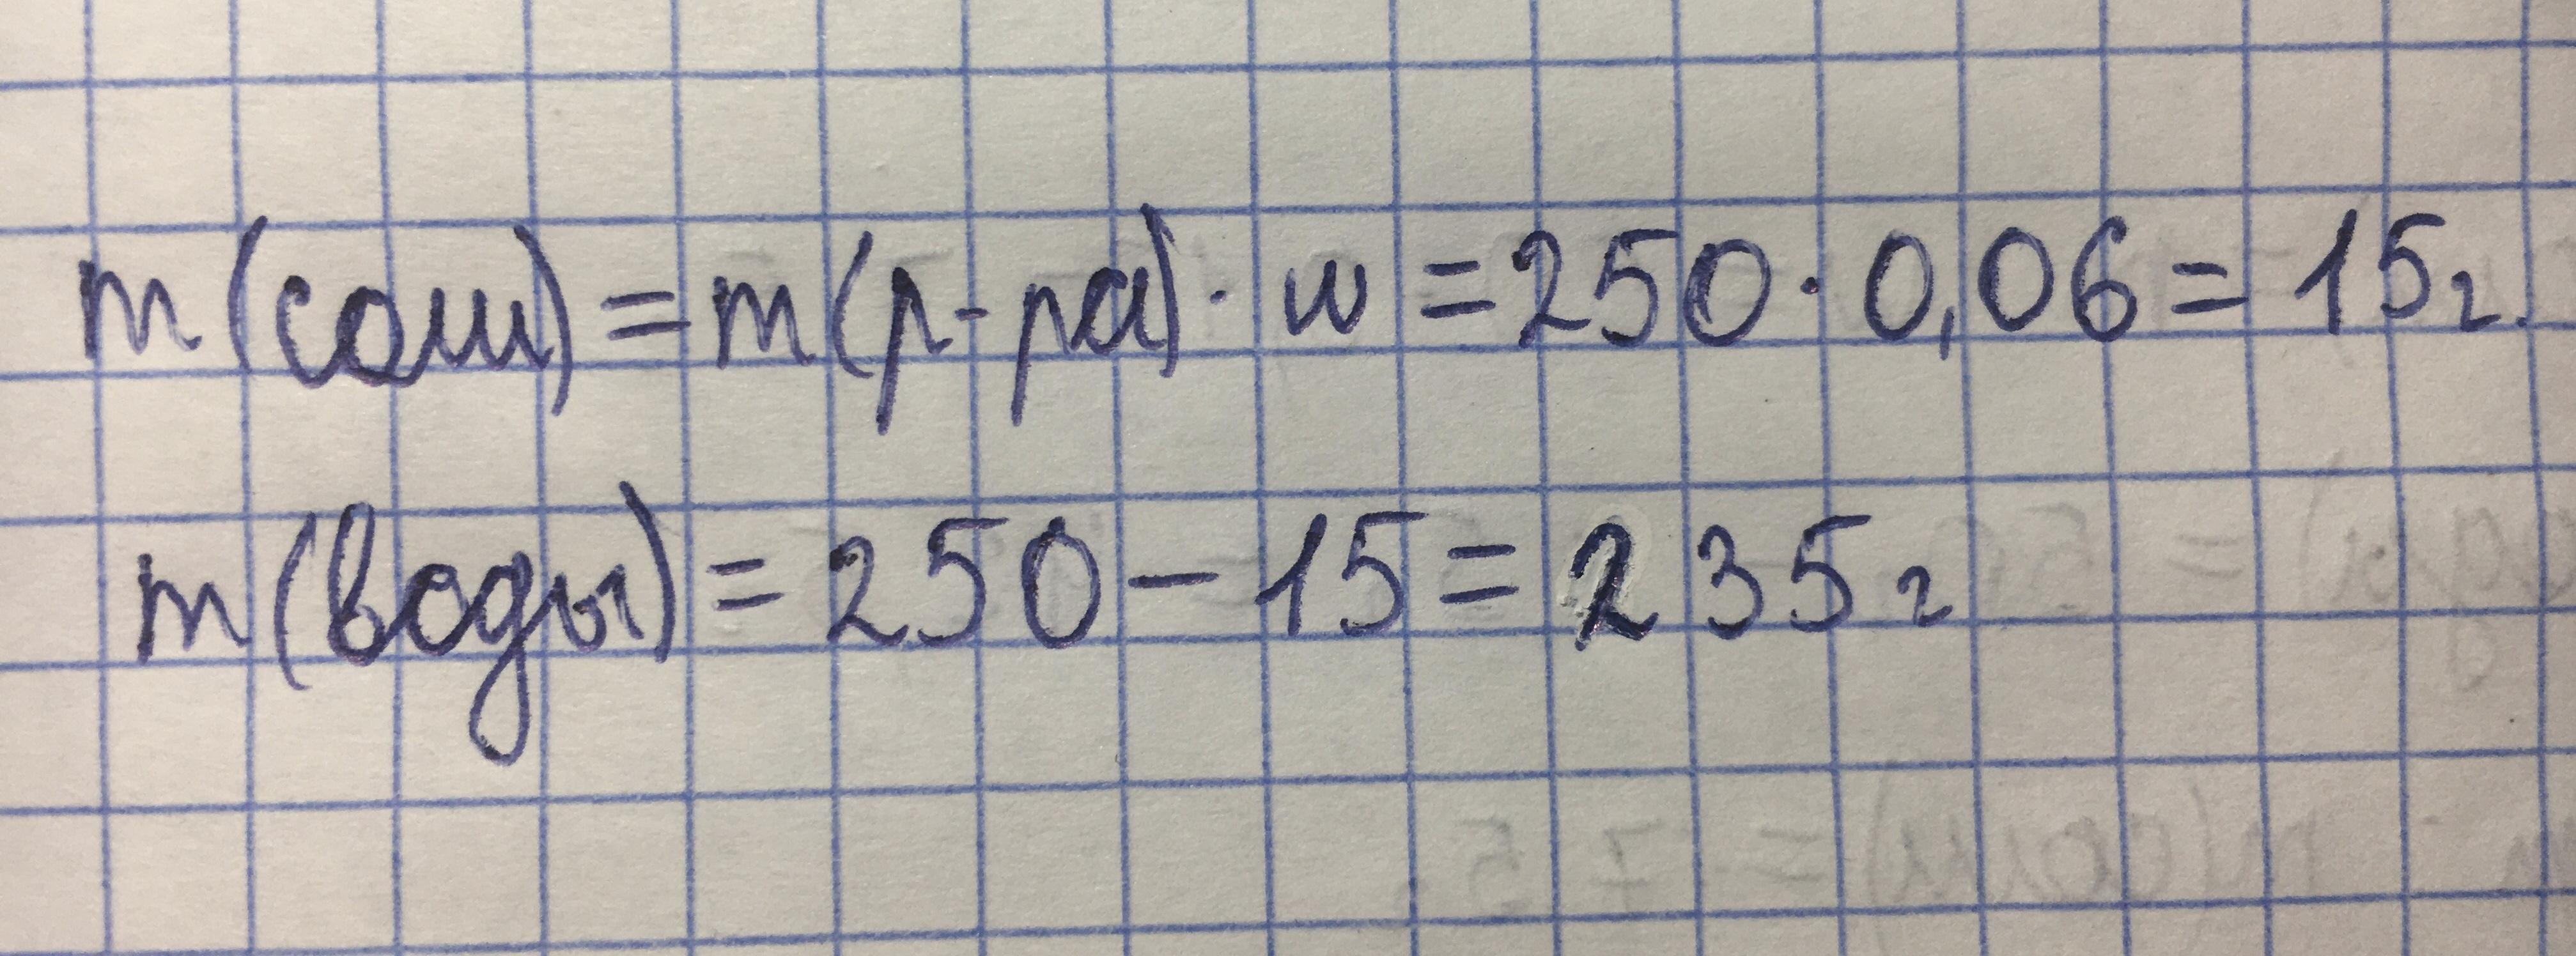 m(соли)=m(р-ра)·w=250·0,06=15г.
m(воды)=250-15=235г